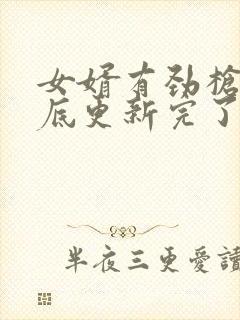 女婿有劲槍
底更新完了
半夜三更爱讀